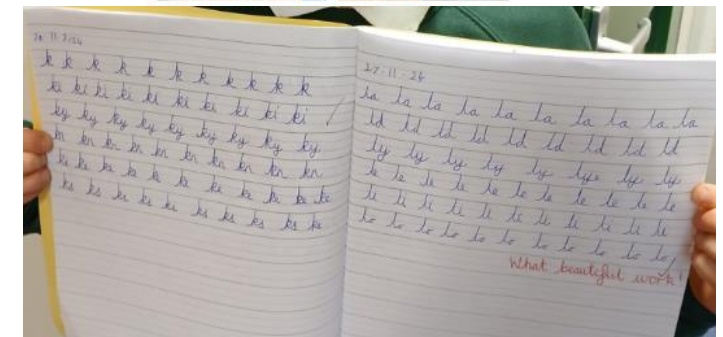 k k k k k k k k k k k
ki ki ki ki ki ki ki ki ki ki
ky ky ky ky ky ky ky ky ky
kn kn kn kn kn kn kn kn kn kn
ke ke ke ke ke ke ke ke ke ke
ks ks ks ks ks ks ks ks ks ks
27.11.24
la la la la la la la la la la
ld ld ld ld ld ld ld ld ld
ly ly ly ly ly ly ly ly
le le le le le le le le le le
li li li li li li li li li li
lo lo lo lo lo lo lo lo lo lo lo
What beautiful work!